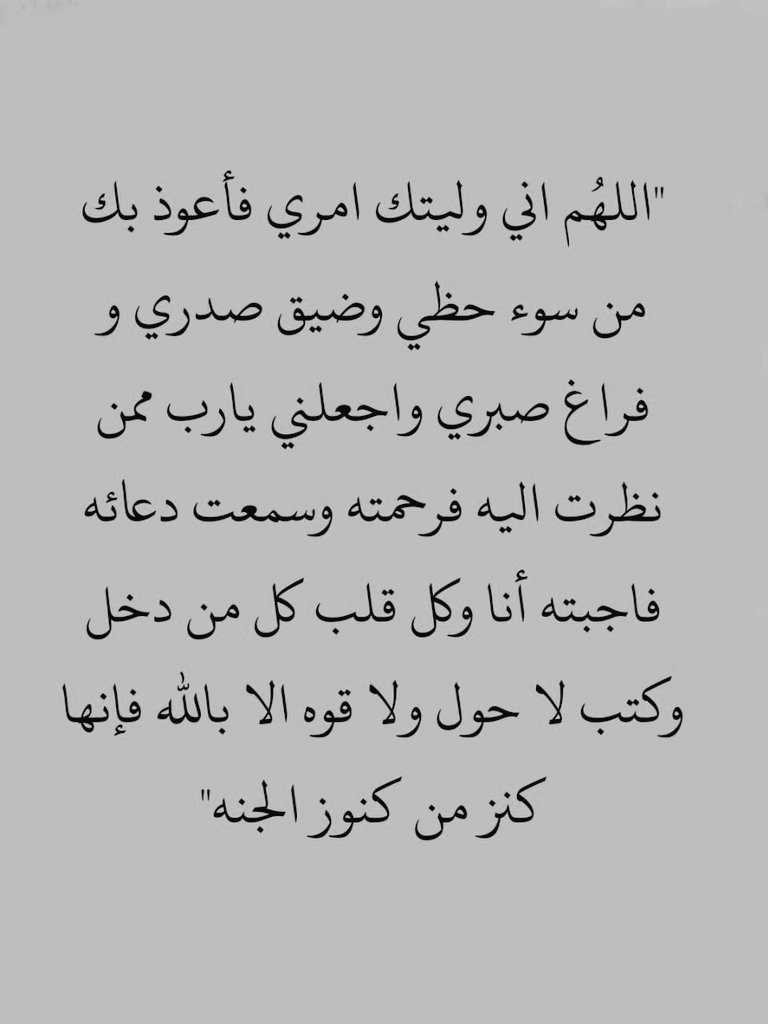 "اللهُم اني وليتك امري فأعوذ بك
من سوء حظي وضيق صدري و
فراغ صبري واجعلني يارب ممن
نظرت اليه فرحمته وسمعت دعائه
فاجبته أنا وكل قلب كل من دخل
وكتب لا حول ولا قوه الا بالله فإنها
كنز من كنوز الجنه"